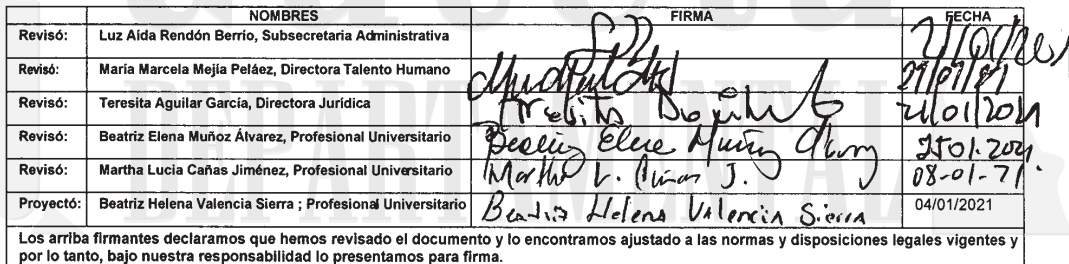 NOMBRES FIRMA FECHA
Revisó: Luz Aída Rendón Berrío, Subsecretaria Administrativa
Revisó: María Marcela Mejía Peláez, Directora Talento Humano
Revisó: Teresita Aguilar García, Directora Jurídica Teresita Aguilar G 21/01/2021
Revisó: Beatriz Elena Muñoz Álvarez, Profesional Universitario Beatriz Elena Muñoz Álvarez
Revisó: Martha Lucia Cañas Jiménez, Profesional Universitario Martha L. Cañas J. 08-01-21
Proyectó: Beatriz Helena Valencia Sierra ; Profesional Universitario Beatriz Helena Valencia Sierra 04/01/2021
Los arriba firmantes declaramos que hemos revisado el documento y lo encontramos ajustado a las normas y disposiciones legales vigentes y
por lo tanto, bajo nuestra responsabilidad lo presentamos para firma.
DEPARTAMENTAL